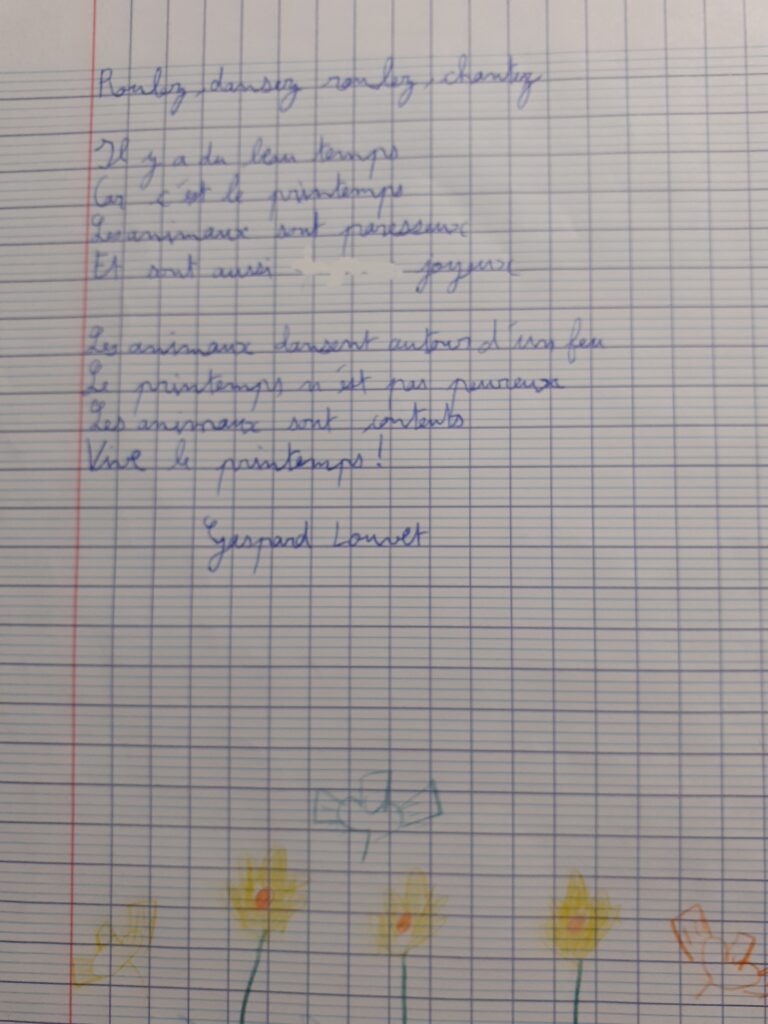 Roulez, dansez roulez, chantez
Il y a du beau temps
Car c'est le printemps
Les animaux sont paresseux
Et sont aussi joyeux
Les animaux dansent autour d'un feu
Le printemps n'est pas peureux
Les animaux sont contents
Vive le printemps !
Gaspard Louvet